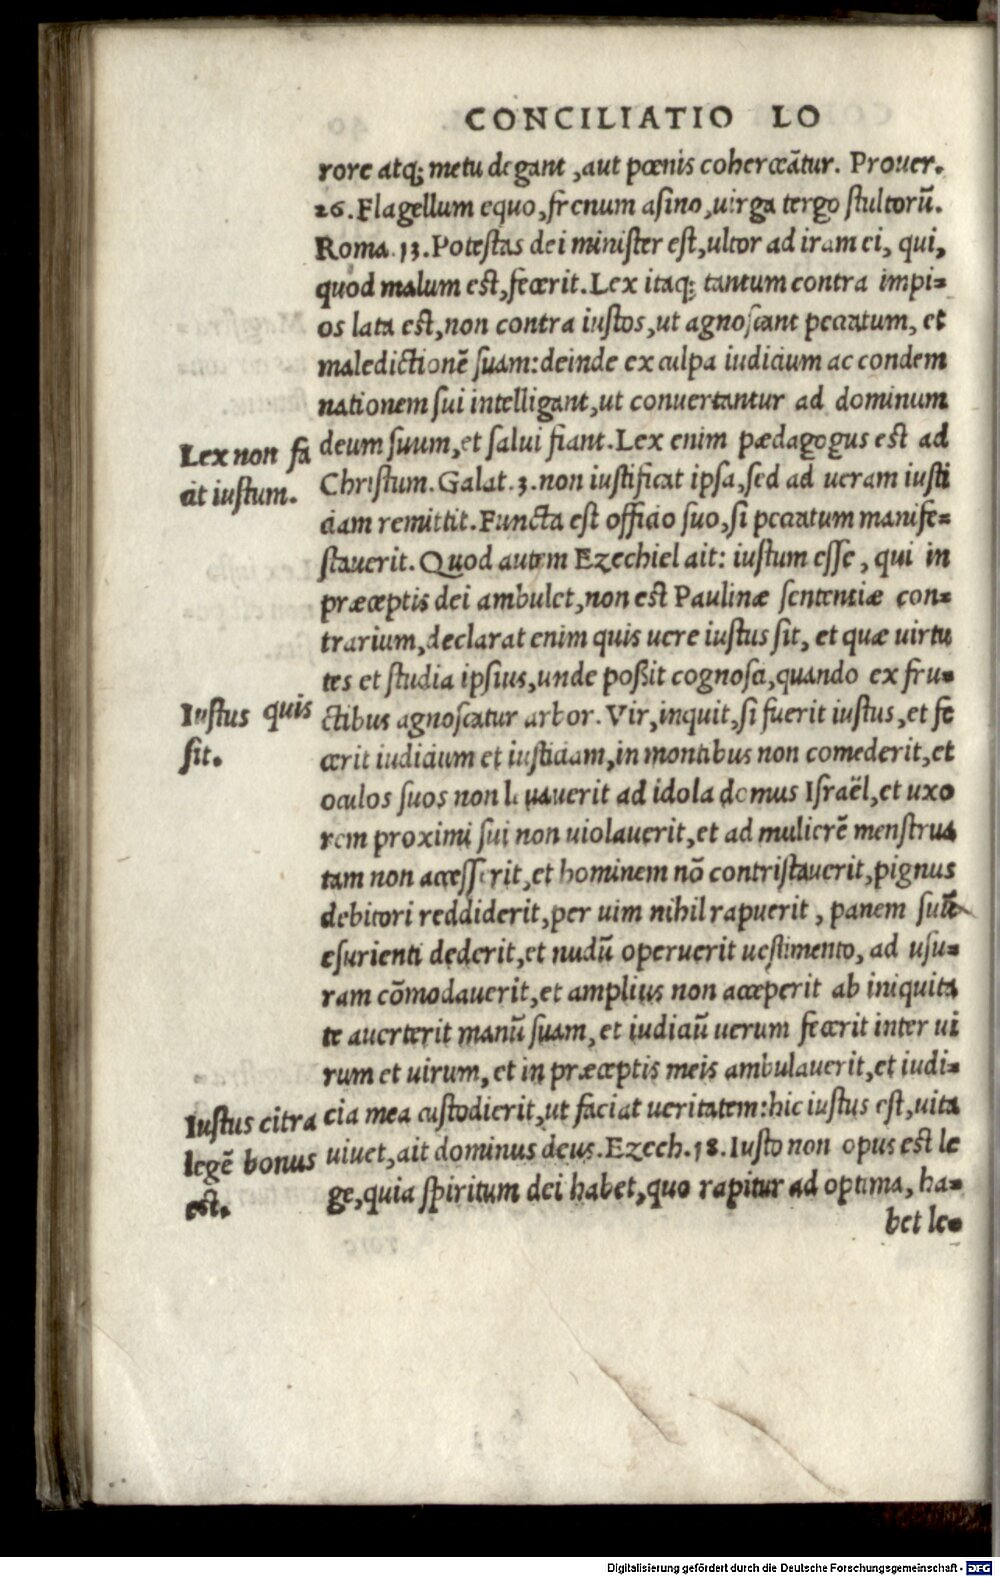 CONCILIATIO LO
rore atq; metu degant, aut pœnis coherceātur. Prouer.
26. Flagellum equo, frenum asino, uirga tergo stultorū.
Roma. 13. Potestas dei minister est, ultor ad iram ei, qui,
quod malum est, fecerit. Lex itaq; tantum contra impi=
os lata est, non contra iustos, ut agnoscant peccatum, et
maledictionē suam: deinde ex culpa iudicium ac condem
nationem sui intelligant, ut conuertantur ad dominum
deum suum, et salui fiant. Lex enim pædagogus est ad
Lex non fa
cit iustum.
Christum. Galat. 3. non iustificat ipsa, sed ad ueram iusti
ciam remittit. Functa est officio suo, si peccatum manife=
stauerit. Quod autem Ezechiel ait: iustum esse, qui in
præceptis dei ambulet, non est Paulinæ sententiæ con=
trarium, declarat enim quis uere iustus sit, et quæ uirtu
tes et studia ipsius, unde poßit cognosci, quando ex fru=
Iustus quis
sit.
ctibus agnoscatur arbor. Vir, inquit, si fuerit iustus, et fe
cerit iudicium et iusticiam, in montibus non comederit, et
oculos suos non leuauerit ad idola domus Israël, et uxo
rem proximi sui non uiolauerit, et ad mulierē menstrua
tam non accesserit, et hominem nō contristauerit, pignus
debitori reddiderit, per uim nihil rapuerit, panem suū
esurienti dederit, et nudū operuerit uestimento, ad usu=
ram cōmodauerit, et amplius non acceperit ab iniquita
te auerterit manū suam, et iudiciū uerum fecerit inter ui
rum et uirum, et in præceptis meis ambulauerit, et iudi=
Iustus citra
legē bonus
est.
cia mea custodierit, ut faciat ueritatem: hic iustus est, uita
uiuet, ait dominus deus. Ezech. 18. Iusto non opus est le
ge, quia spiritum dei habet, quo rapitur ad optima, ha=
bet le=
Digitalisierung gefördert durch die Deutsche Forschungsgemeinschaft - DFG